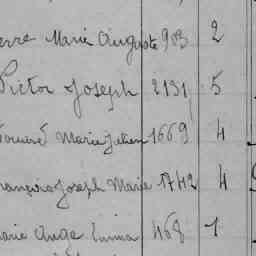 erre Marie Auguste 903 2
Victor Joseph 2131 5
douard Marie Julien 1669 4
rançois Joseph Marie 1742 4
arie Ange Emma 468 1